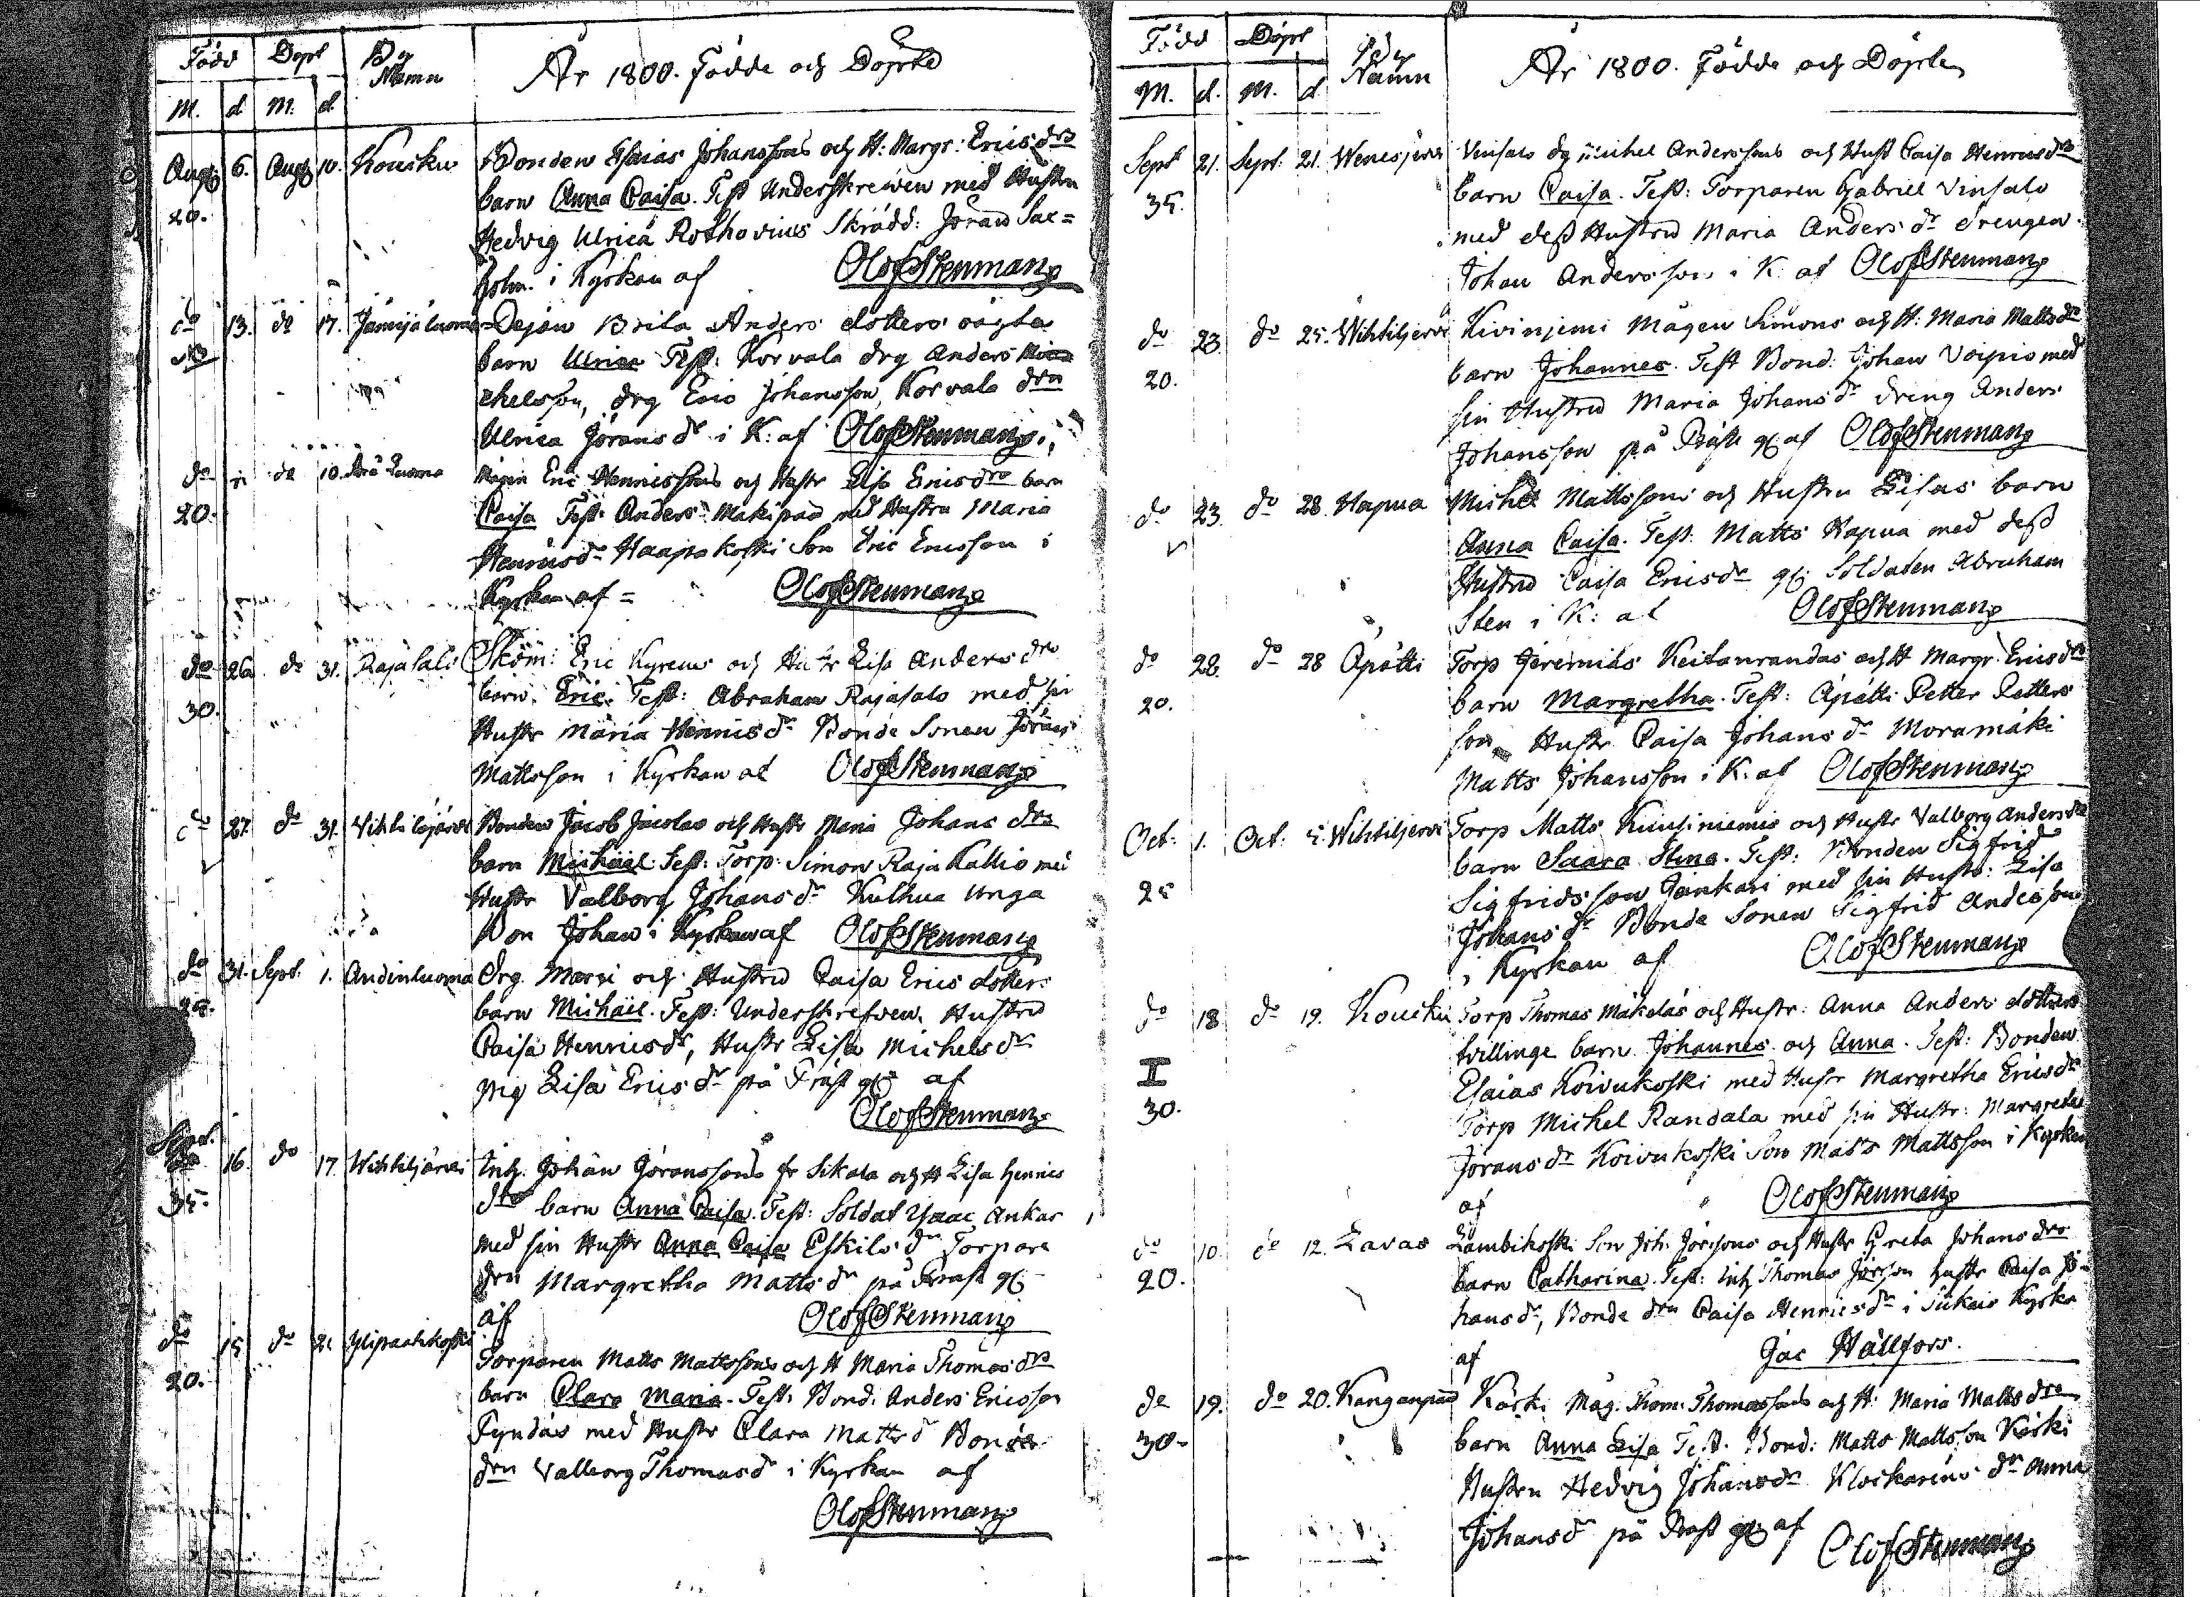 Född Döpt By Namn År 1800. Födde och Döpte
M. d M. d.
Aug. 6. Aug. 10. Kousku Bonden Esaias Johanssons och H: Margr: Erics drs
20. barn Anna Caisa. Test Underskrewen med Hustru
Hedvig Ulrica Rothovius Skrädd: Jöran Sac=
i Kyrkan af Olof Stenman
do 13. do 17. Jämijäluoma Pejan Brita Anders dotters oägta
barn Ulrica Test: Korvala drg Anders Mi
chelsson, drg Eric Johansson, Korvala drn
Ulrica Jörans dr i K: af Olof Stenman
do do 10. Luoma Mågen Eric Henricssons och Hustr Lisa Erics drs barn
20. Caisa Test. Anders Makipää med Hustru Maria
Henricsdr Haapakoski Son Eric Ericsson i
Kyrkan af = Olof Stenman
do 26 do 31. Rajasalo Skom: Eric Kyrenius och Hustr Lisa Anders drs
30. barn. Eric. Test: Abraham Rajasalo med sin
Hustr Maria Henricsdr Bonde Sonen Jöran
Mattsson i Kyrkan af Olof Stenman
do 27. do 31. Vihtiljärvi Bonden Jacob Jacolas och Hustr Maria Johans drs
barn Michael. Test: Torp. Simon Rajakallio med
Hustr Valborg Johans dr Kulhua unga
Bon Johan i Kyrkan af Olof Stenman
do 31. Sept. 1. Andinluoma Drg. Matti och Hustru Caisa Erics dotters
25. barn Michael. Test: Underskrefven, Hustru
Caisa Henricsdr, Hustr Lisa Michelsdr
pig Lisa Erics dr på Präst gd af
Olof Stenman
Sept. 16. do 17. Wihtiljärvi Inh. Johan Jöranssons fr Sikala och H Lisa Henrics
35. drs barn Anna Caisa. Test: Soldat Isaac Ankar
med sin Hustr Anna Caisa Eskils dr Torpare
drn Margretha Matts dr på Präst gd
af Olof Stenman
do 15 do 21 Ylipaatikoski Torparen Matts Mattssons och H Maria Thomas drs
20. barn Clara Maria. Test. Bond. Anders Ericsson
Fyndäs med Hustr Clara Matts d Bonde
drn Valborg Thomasdr i Kyrkan af
Olof Stenman
Född Döpt By Namn År 1800. Födde och Döpte
M. d. M. d
Sept 21. Sept: 21. Wenesjervi Vinsalo drg Michel Anderssons och Hust Caisa Henricsdrs
35. barn Caisa. Test: Torparen Gabriel Vinsalo
med dess Hustru Maria Anders dr Drengen
Johan Andersson i K. af Olof Stenman
do 23. do 25. Wihtiljervi Kivinjemi Mågen Simons och H: Maria Mattsdrs
20. barn Johannes. Test Bond: Johan Voipio med
sin Hustru Maria Johans dr dreng Anders
Johansson på Präst gd af Olof Stenman
do 23. do 28. Hapua Michel Mattssons och Hustru Lisas barn
Anna Caisa. Test: Matts Hapua med dess
Hustru Caisa Ericsdr gl: Soldaten Abraham
Sten i K: af Olof Stenman
do 28. do 28 Äpätti Torp Jeremias Keitanrandas och H Margr. Erics drs
20. barn Margretha. Test: Äpätti Petter Petters
son Hustr Caisa Johans dr Moramäki
Matts Johansson i K. af Olof Stenman
Oct: 1. Oct: 5. Wihtiljervi Torp Matts Kuusiniemis och Hustr Valborg Andersdrs
25 barn Saara Stina. Test: Bonden Sigfrid
Sigfridsson Jankari med sin Hustr: Lisa
Johans dr Bonde Sonen Sigfrid Andersson
i Kyrkan af Olof Stenman
do 18 do 19. Kousku Torp Thomas Mäkeläs och Hustr: Anna Anders dotters
II tvillinge barn Johannes och Anna. Test: Bonden
30. Esaias Koivukoski med Hustr Margretha Ericsdr
Torp Michel Randala med sin Hustr: Margreta
Jörans dr Koivukoski Son Matts Mattsson i Kyrkan
af Olof Stenman
do 10. do 12. Lavas Lambikoski Son Joh: Jörssons och Hustr Greta Johans drs
20. barn Catharina. Test: Inh Thomas Jörsson hustr Caisa Jo=
hans dr, Bonde drn Caisa Henricsdr i Siikais Kyrka
af Jac Hällfors.
do 19. do 20. Kanganpää Kärki Måg. Thom: Thomassons och H: Maria Matts drs
30. barn Anna Lisa Test. Bond: Matts Mattsson Kärki
Hustru Hedvig Johansdr Klockarens drn Anna
Johansd på Präst gd af Olof Stenman